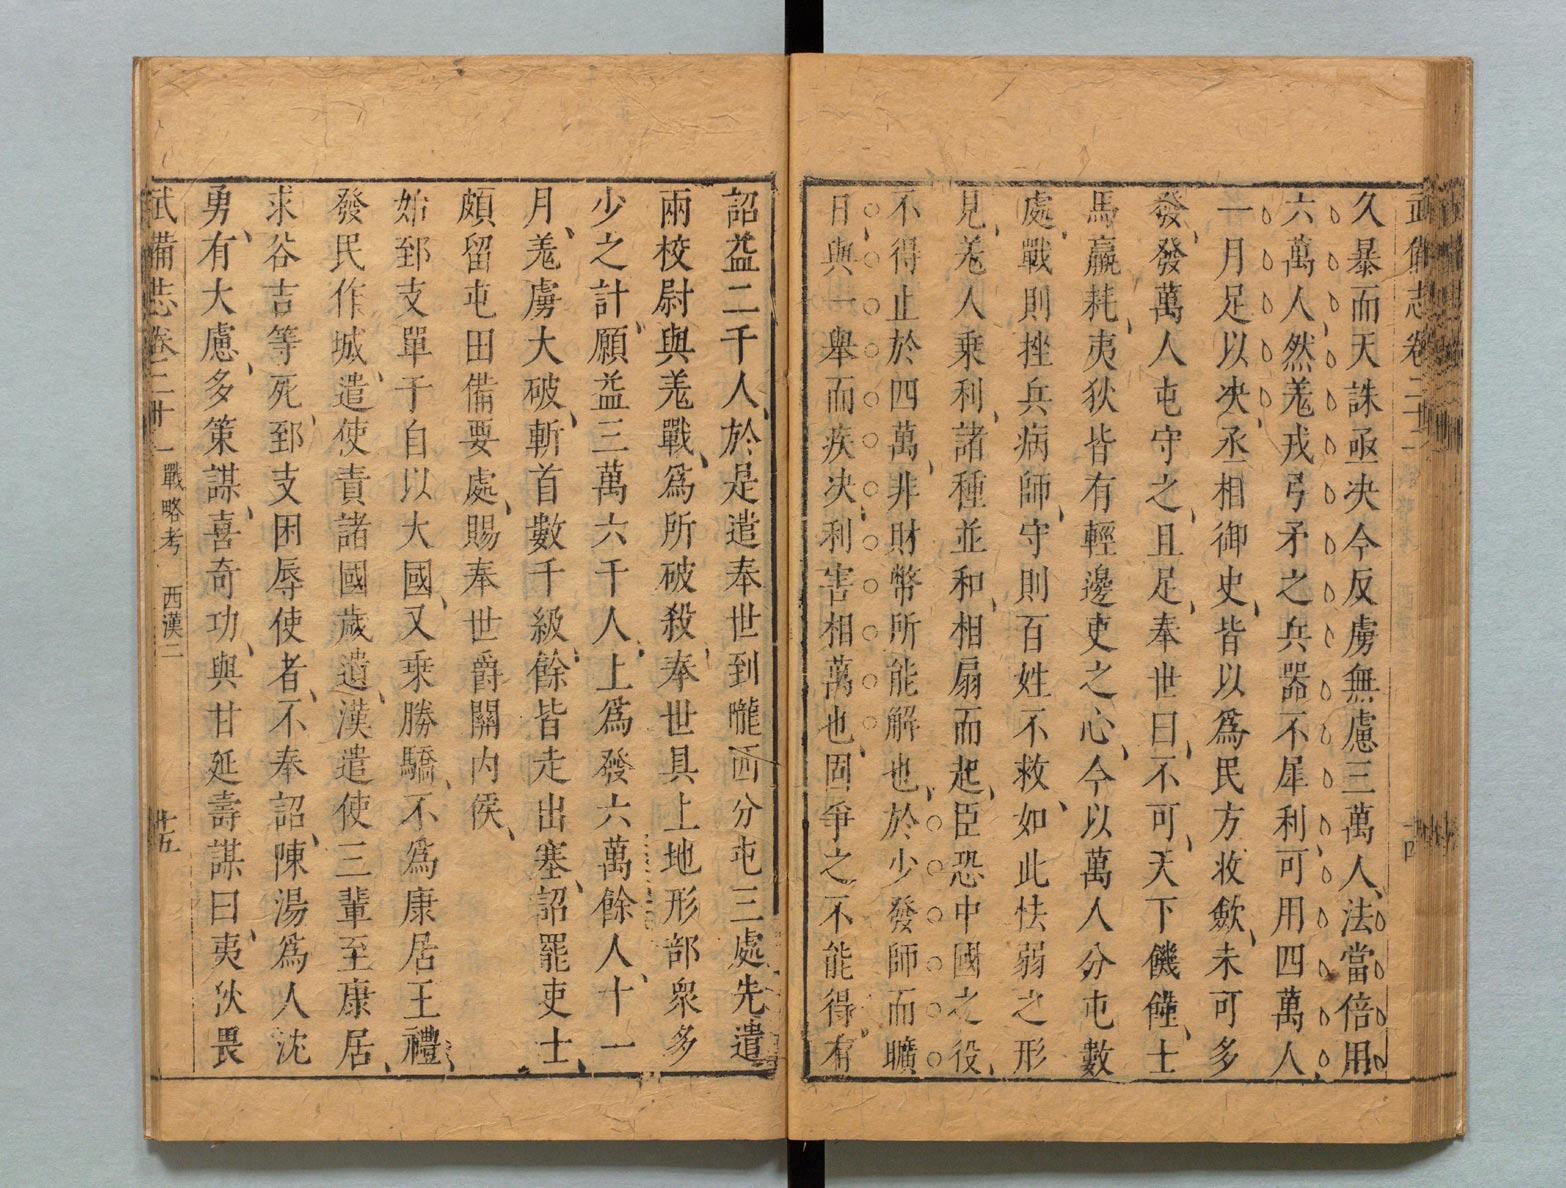 武備志卷二十一
久暴而天誅亟决今反虜無慮三萬人法當倍用
六萬人然羗戎弓矛之兵器不犀利可用四萬人
一月足以决丞相御史皆以爲民方收歛未可多
發發萬人屯守之且足奉世曰不可天下饑饉士
馬羸耗夷狄皆有輕邊吏之心今以萬人分屯數
處戰則挫兵病師守則百姓不救如此怯弱之形
見羗人乘利諸種並和相扇而起臣恐中國之役
不得止於四萬非財幣所能解也於少發師而曠
日與一舉而疾决利害相萬也固爭之不能得有
詔益二千人於是遣奉世到隴西分屯三處先遣
兩校尉與羗戰爲所破殺奉世具上地形部衆多
少之計願益三萬六千人上爲發六萬餘人十一
月羗虜大破斬首數千級餘皆走出塞詔罷吏士
頗留屯田備要處賜奉世爵關內侯
始郅支單于自以大國又乘勝驕不爲康居王禮
發民作城遣使責諸國歲遺漢遣使三輩至康居
求谷吉等死郅支困辱使者不奉詔陳湯爲人沈
勇有大慮多策謀喜奇功與甘延壽謀曰夷狄畏
武備志卷二十一 戰略考 西漢二 廿五